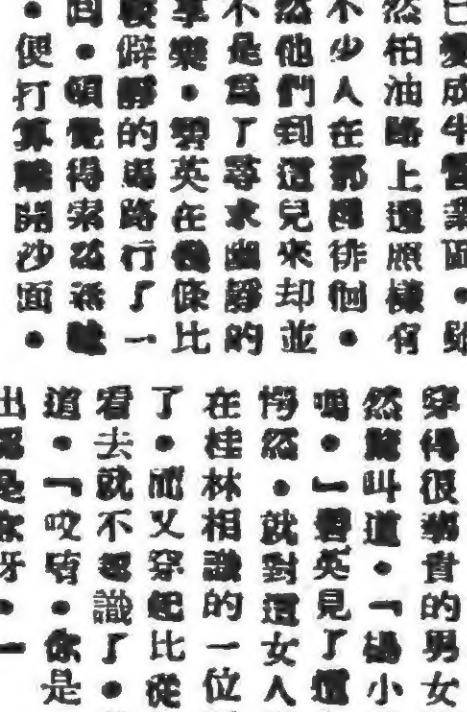 已變成牛營業區●雖
然柏油路上還照樣有
不少人在那裡徘徊●
然他們到這兒來却並
不是爲了尋求幽靜的
享樂●雲英在幾條比
較僻靜的馬路行了一
回●頓覺得索然無味
●便打算離開沙面●
穿得很華貴的男女
然後叫道●「楊小
●」雲英見了這
愕然●就對這女人
在桂林相識的一位
了●而又穿起比從
看去就不認識了●
道●「哎唷●你是
出是你呀●「